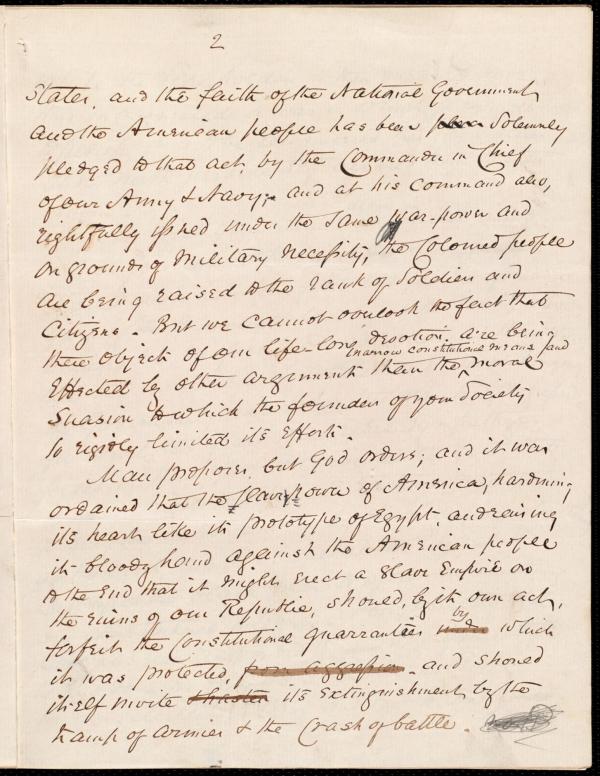 2
States, and the faith of the National Government
and the American people has been solemnly
pledged to that act, by the Commander in Chief
of our Army & Navy; and at his command also,
rightfully issued under the same war-power and
on grounds of military necessity, the Colored people
are being raised to the rank of Soldiers and
Citizens. But we cannot overlook the fact that
these objects of our life-long devotion, are being
narrow constitutional means and
effected by other arguments than the ^ moral
Suasion to which the founders of your Society
so rigidly limited its efforts.
Man proposes, but God orders; and it was
ordained that the slave power of America, hardening
its heart like its prototype of Egypt, and raising
its bloody hand against the American people
to the End that it might erect a Slave Empire on
the ruins of our Republic, should, by its own act,
by
forfeit the Constitutional guarranties under which
it was protected, from aggression. and should
itself invite its extinguishment by the
tramp of armies & the Crash of battle.